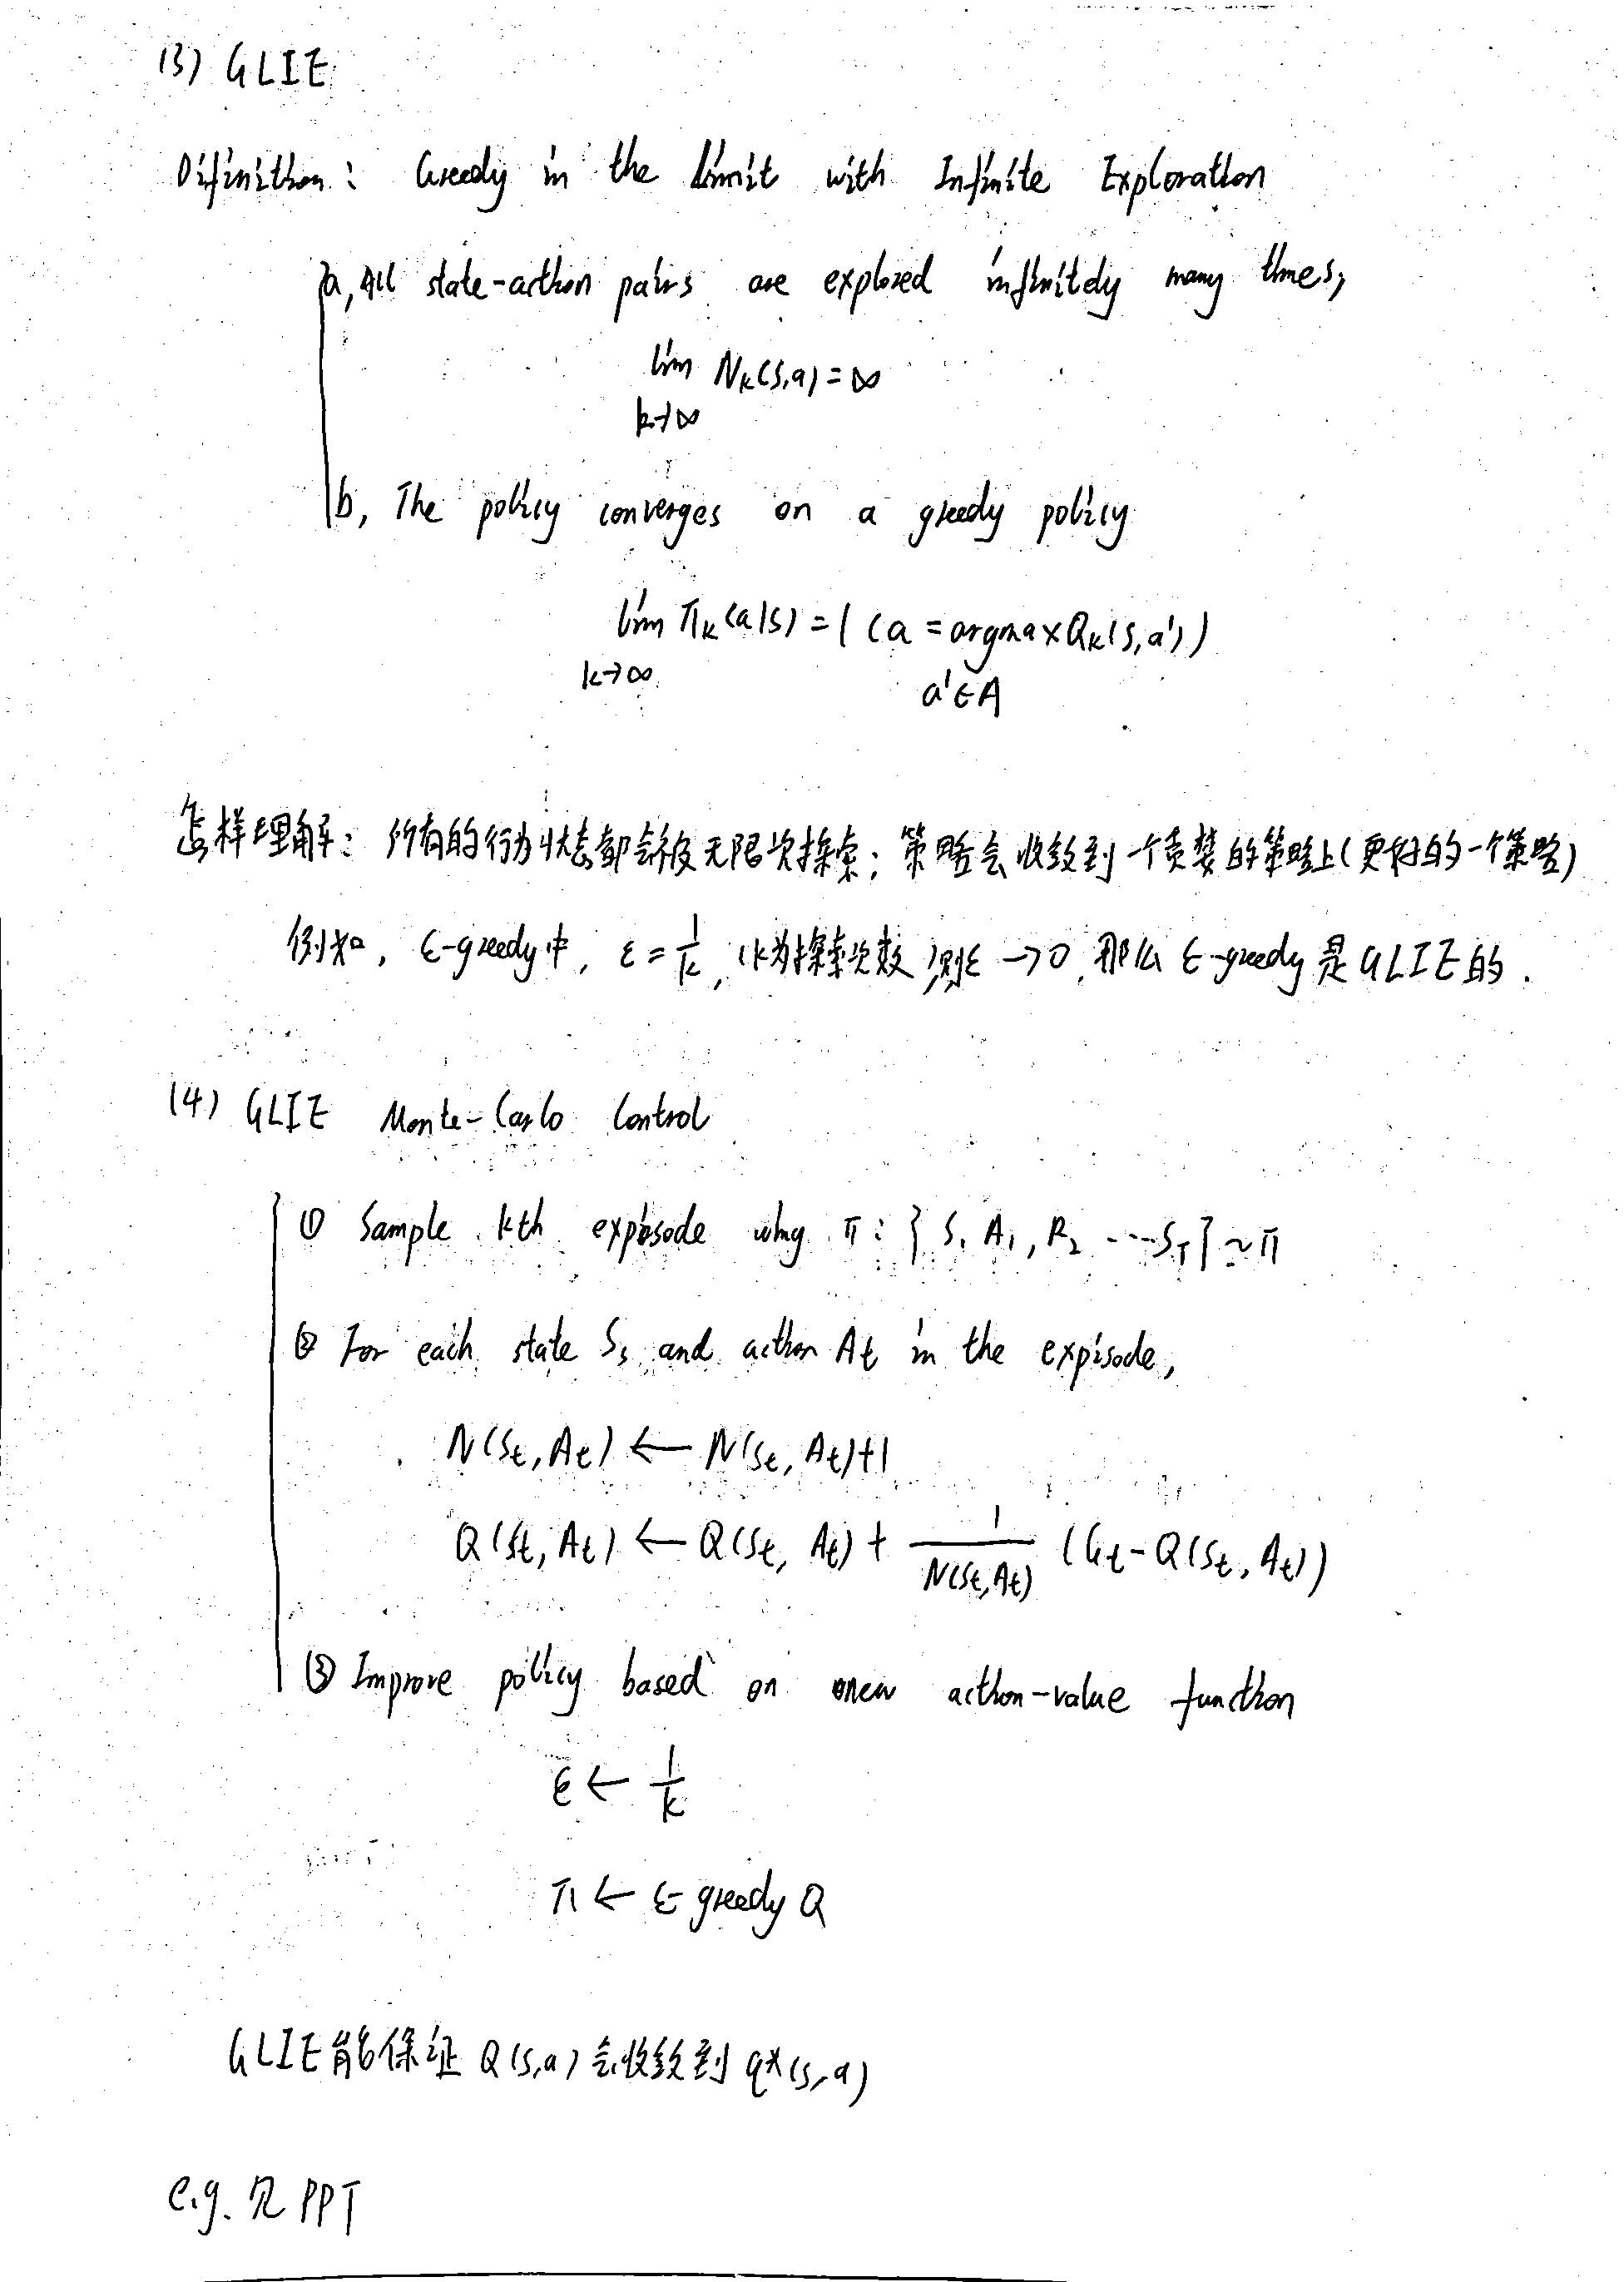 (3) GLIE
Difinition: Greedy in the limit with Infinite Exploration
a, All state-action pairs are explored infinitely many times,
lim Nk(s,a)=∞
k→∞
b, The policy converges on a greedy policy
lim πk(a|s)=1 (a=argmax Qk(s,a'))
k→∞ a'∈A
怎样理解: 所有的行为状态都会被无限次探索; 策略会收敛到一个贪婪的策略上(更好的一个策略)
例如, ε-greedy中, ε=1/k, (k为探索次数)则ε→0, 那么 ε-greedy是GLIE的.
(4) GLIE Monte-Carlo Control
① Sample kth expisode using π: {S1 A1, R2 ···ST}~π
② For each state Ss and action At in the expisode,
N(St,At)←N(St,At)+1
Q(St,At)←Q(St,At)+1/N(St,At) (Gt-Q(St,At))
③ Improve policy based on new action-value function
ε←1/k
π←ε-greedy Q
GLIE能保证 Q(s,a)会收敛到 q*(s,a)
e.g. 见PPT